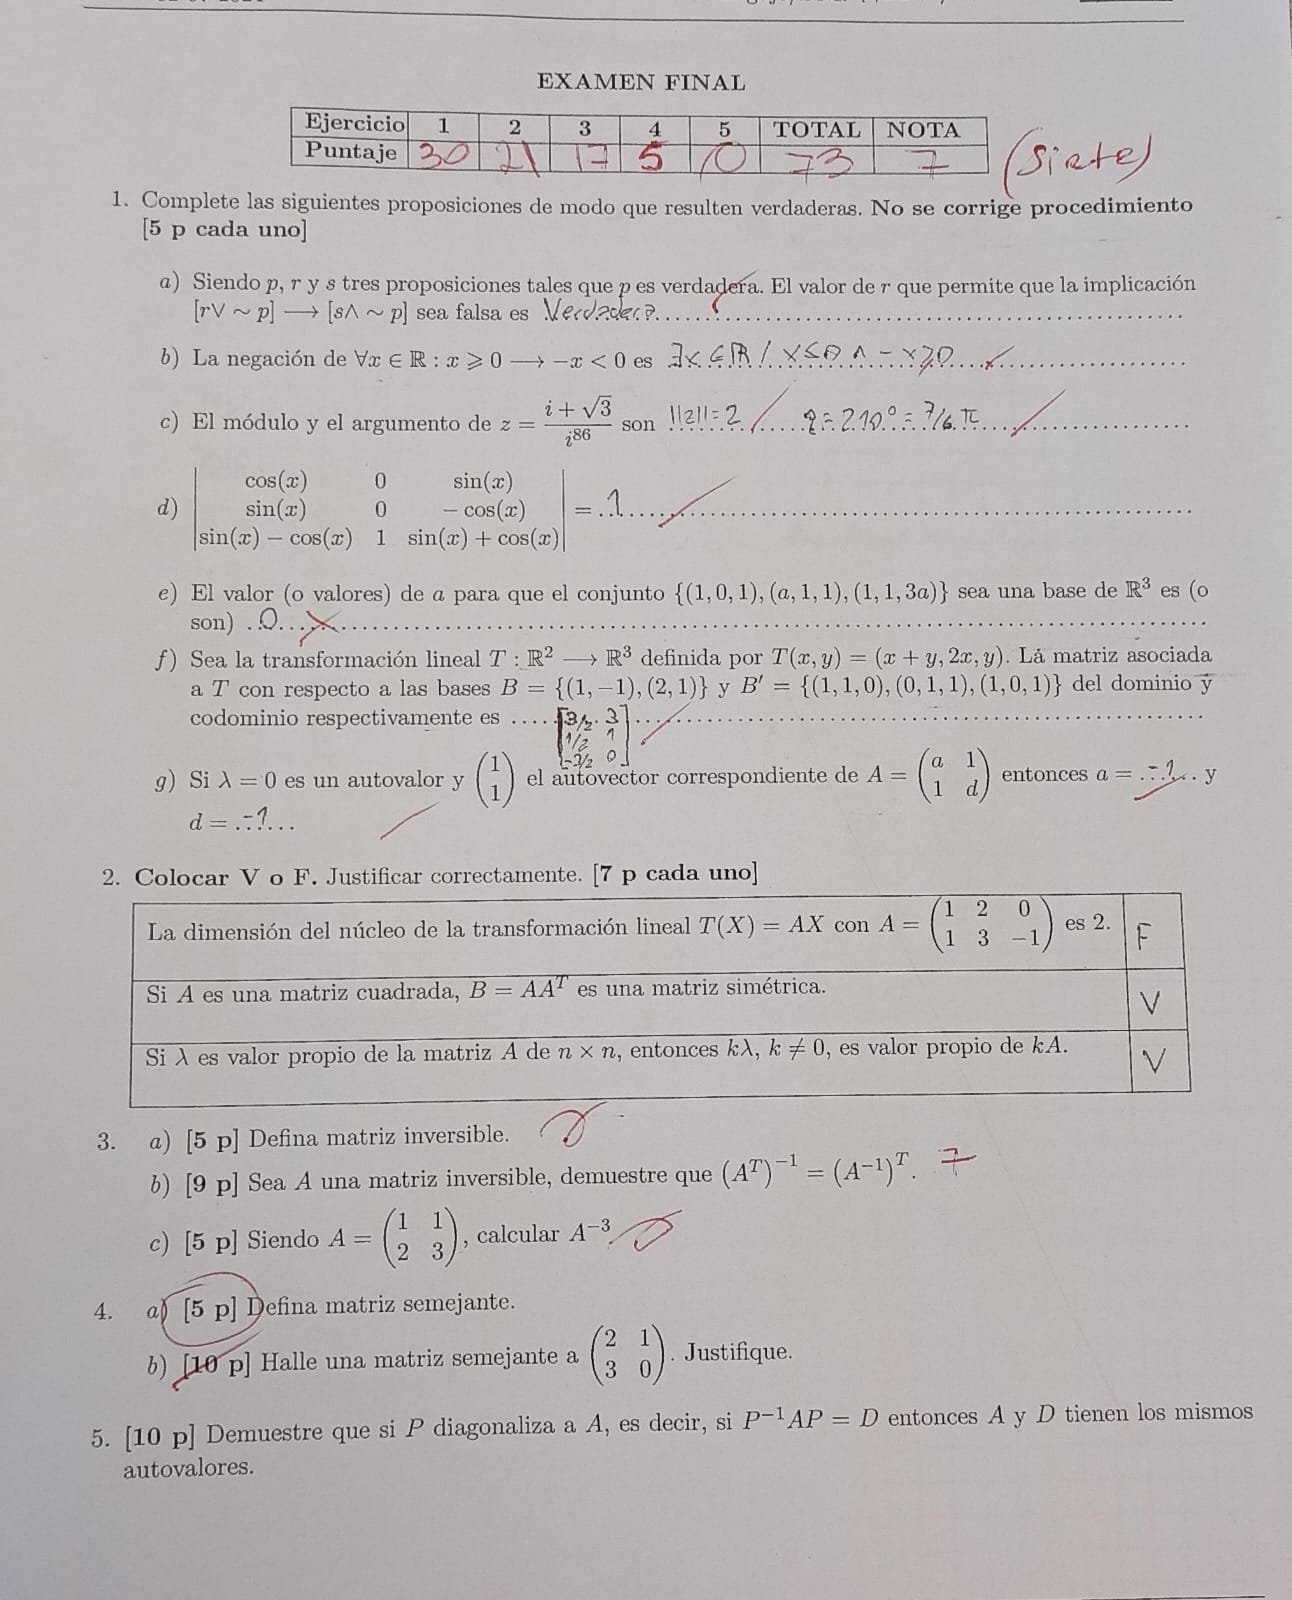 EXAMEN FINAL
Ejercicio 1 2 3 4 5 TOTAL NOTA
Puntaje 30 21 17 5 0 73 7 (siete)
1. Complete las siguientes proposiciones de modo que resulten verdaderas. No se corrige procedimiento
[5 p cada uno]
a) Siendo p, r y s tres proposiciones tales que p es verdadera. El valor de r que permite que la implicación
[r∨ ∼ p] ⟶ [s∧ ∼ p] sea falsa es Verdadera
b) La negación de ∀x ∈ ℝ : x ⩾ 0 ⟶ −x < 0 es ∃x ∈ ℝ / x≤0 ∧ −x⩾0
c) El módulo y el argumento de z = (i + √3)/i^86 son ||z||=2 210° = 7/6 π
d) | cos(x) 0 sin(x) |
| sin(x) 0 − cos(x) | = 1
| sin(x) − cos(x) 1 sin(x) + cos(x) |
e) El valor (o valores) de a para que el conjunto {(1, 0, 1), (a, 1, 1), (1, 1, 3a)} sea una base de ℝ³ es (o
son) 0
f) Sea la transformación lineal T : ℝ² ⟶ ℝ³ definida por T(x, y) = (x + y, 2x, y). La matriz asociada
a T con respecto a las bases B = {(1, −1), (2, 1)} y B′ = {(1, 1, 0), (0, 1, 1), (1, 0, 1)} del dominio y
codominio respectivamente es [3/2 3
1/2 1
-3/2 0]
g) Si λ = 0 es un autovalor y (1 1) el autovector correspondiente de A = (a 1 1 d) entonces a = -1 y
d = -1
2. Colocar V o F. Justificar correctamente. [7 p cada uno]
La dimensión del núcleo de la transformación lineal T(X) = AX con A = (1 2 0 1 3 −1) es 2. F
Si A es una matriz cuadrada, B = AA^T es una matriz simétrica. V
Si λ es valor propio de la matriz A de n × n, entonces kλ, k ≠ 0, es valor propio de kA. V
3. a) [5 p] Defina matriz inversible.
b) [9 p] Sea A una matriz inversible, demuestre que (A^T)^−1 = (A^−1)^T. 7
c) [5 p] Siendo A = (1 1 2 3), calcular A^−3
4. a) [5 p] Defina matriz semejante.
b) [10 p] Halle una matriz semejante a (2 1 3 0). Justifique.
5. [10 p] Demuestre que si P diagonaliza a A, es decir, si P^−1AP = D entonces A y D tienen los mismos
autovalores.